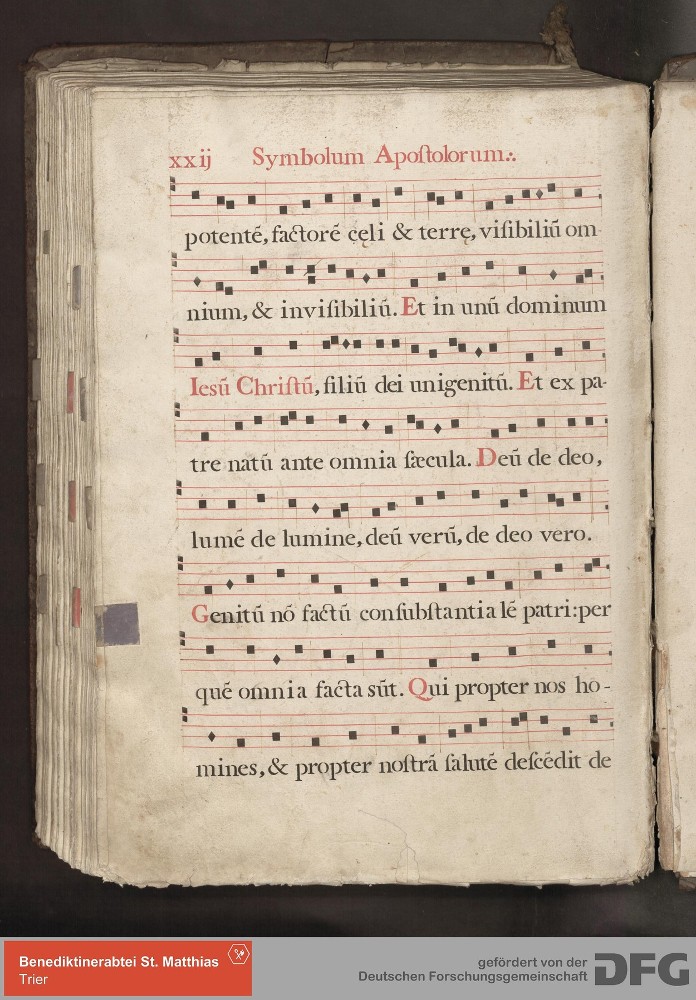 xxij Symbolum Apoſtolorum.·.
potentē, factorē cęli & terrę, viſibiliū om-
nium, & inviſibiliū. Et in unū dominum
Iesū Chriſtū, filiū dei unigenitū. Et ex pa-
tre natū ante omnia ſæcula. Deū de deo,
lumē de lumine, deū verū, de deo vero.
Genitū nō factū conſubſtantialē patri: per
quē omnia facta sūt. Qui propter nos ho-
mines, & propter noſtrā ſalutē deſcēdit de
Benediktinerabtei St. Matthias
Trier
gefördert von der
Deutschen Forschungsgemeinschaft
DFG